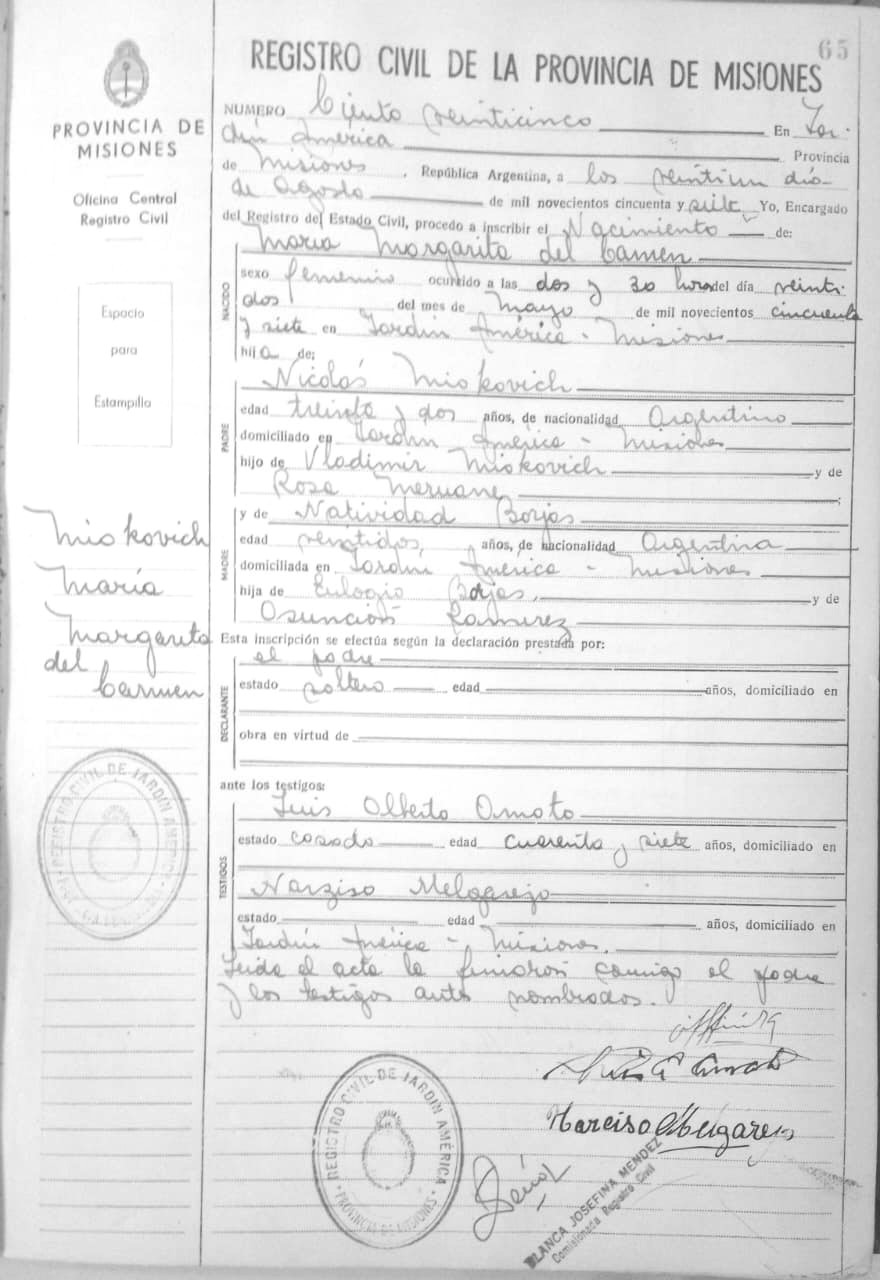 65
REGISTRO CIVIL DE LA PROVINCIA DE MISIONES
PROVINCIA DE
MISIONES
Oficina Central
Registro Civil
Espacio
para
Estampilla
NUMERO Ciento veinticinco En Jar-
dín América Provincia
de Misiones, República Argentina, a los veintiun dia
de Agosto de mil novecientos cincuenta y siete Yo, Encargado
del Registro del Estado Civil, procedo a inscribir el Nacimiento de:
NACIDO
Maria Margarita del Carmen
sexo femenino ocurrido a las dos y 30 horas del día veinti-
dos del mes de Mayo de mil novecientos cincuenta
y siete en Jardín América - Misiones
hija de:
PADRE
Nicolás Miskovich
edad treinta y dos años, de nacionalidad Argentino
domiciliado en Jardín América - Misiones
hijo de Vladimir Miskovich y de
Rosa Meruane;
MADRE
y de Natividad Borjas
edad veintidos, años, de nacionalidad Argentina
domiciliada en Jardín América - Misiones
hija de Eulogio Borjas, y de
Osunción Ramirez
Miskovich
María
Margarita
del
Carmen
Esta inscripción se efectúa según la declaración prestada por:
el padre
DECLARANTE
estado soltero edad años, domiciliado en
obra en virtud de
ante los testigos:
TESTIGOS
Luis Alberto Amoto
estado casado edad cuarenta y siete años, domiciliado en
Narziso Melgarejo
estado edad años, domiciliado en
Jardín América - Misiones.
Leida el acta la firmaron conmigo el padre
y los testigos ante nombrados.
REGISTRO CIVIL DE JARDIN AMÉRICA
Narciso Melgarejo
REGISTRO CIVIL DE JARDIN AMÉRICA
PROVINCIA DE MISIONES
BLANCA JOSEFINA MENDEZ
Comisionada Registro Civil